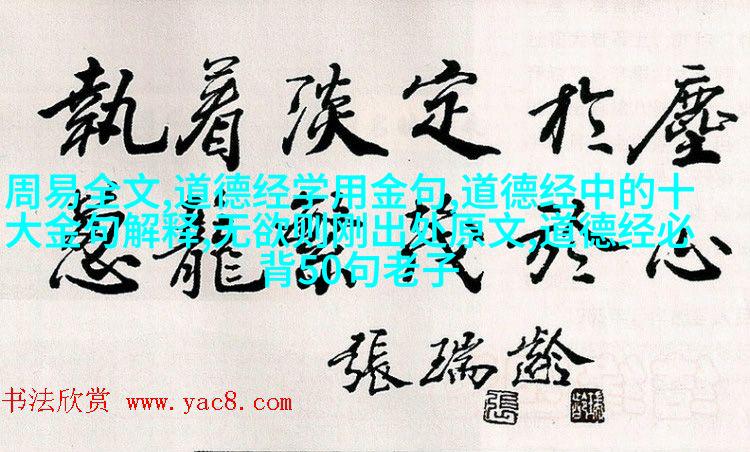 執着淡定於塵
周易全文,道德经学用金句,道德经中的十
大金句解释,无欲则刚出处原文,道德经必
背50句老子
龍 於心
張瑞齡
张
书法欣赏 www.yac8.com